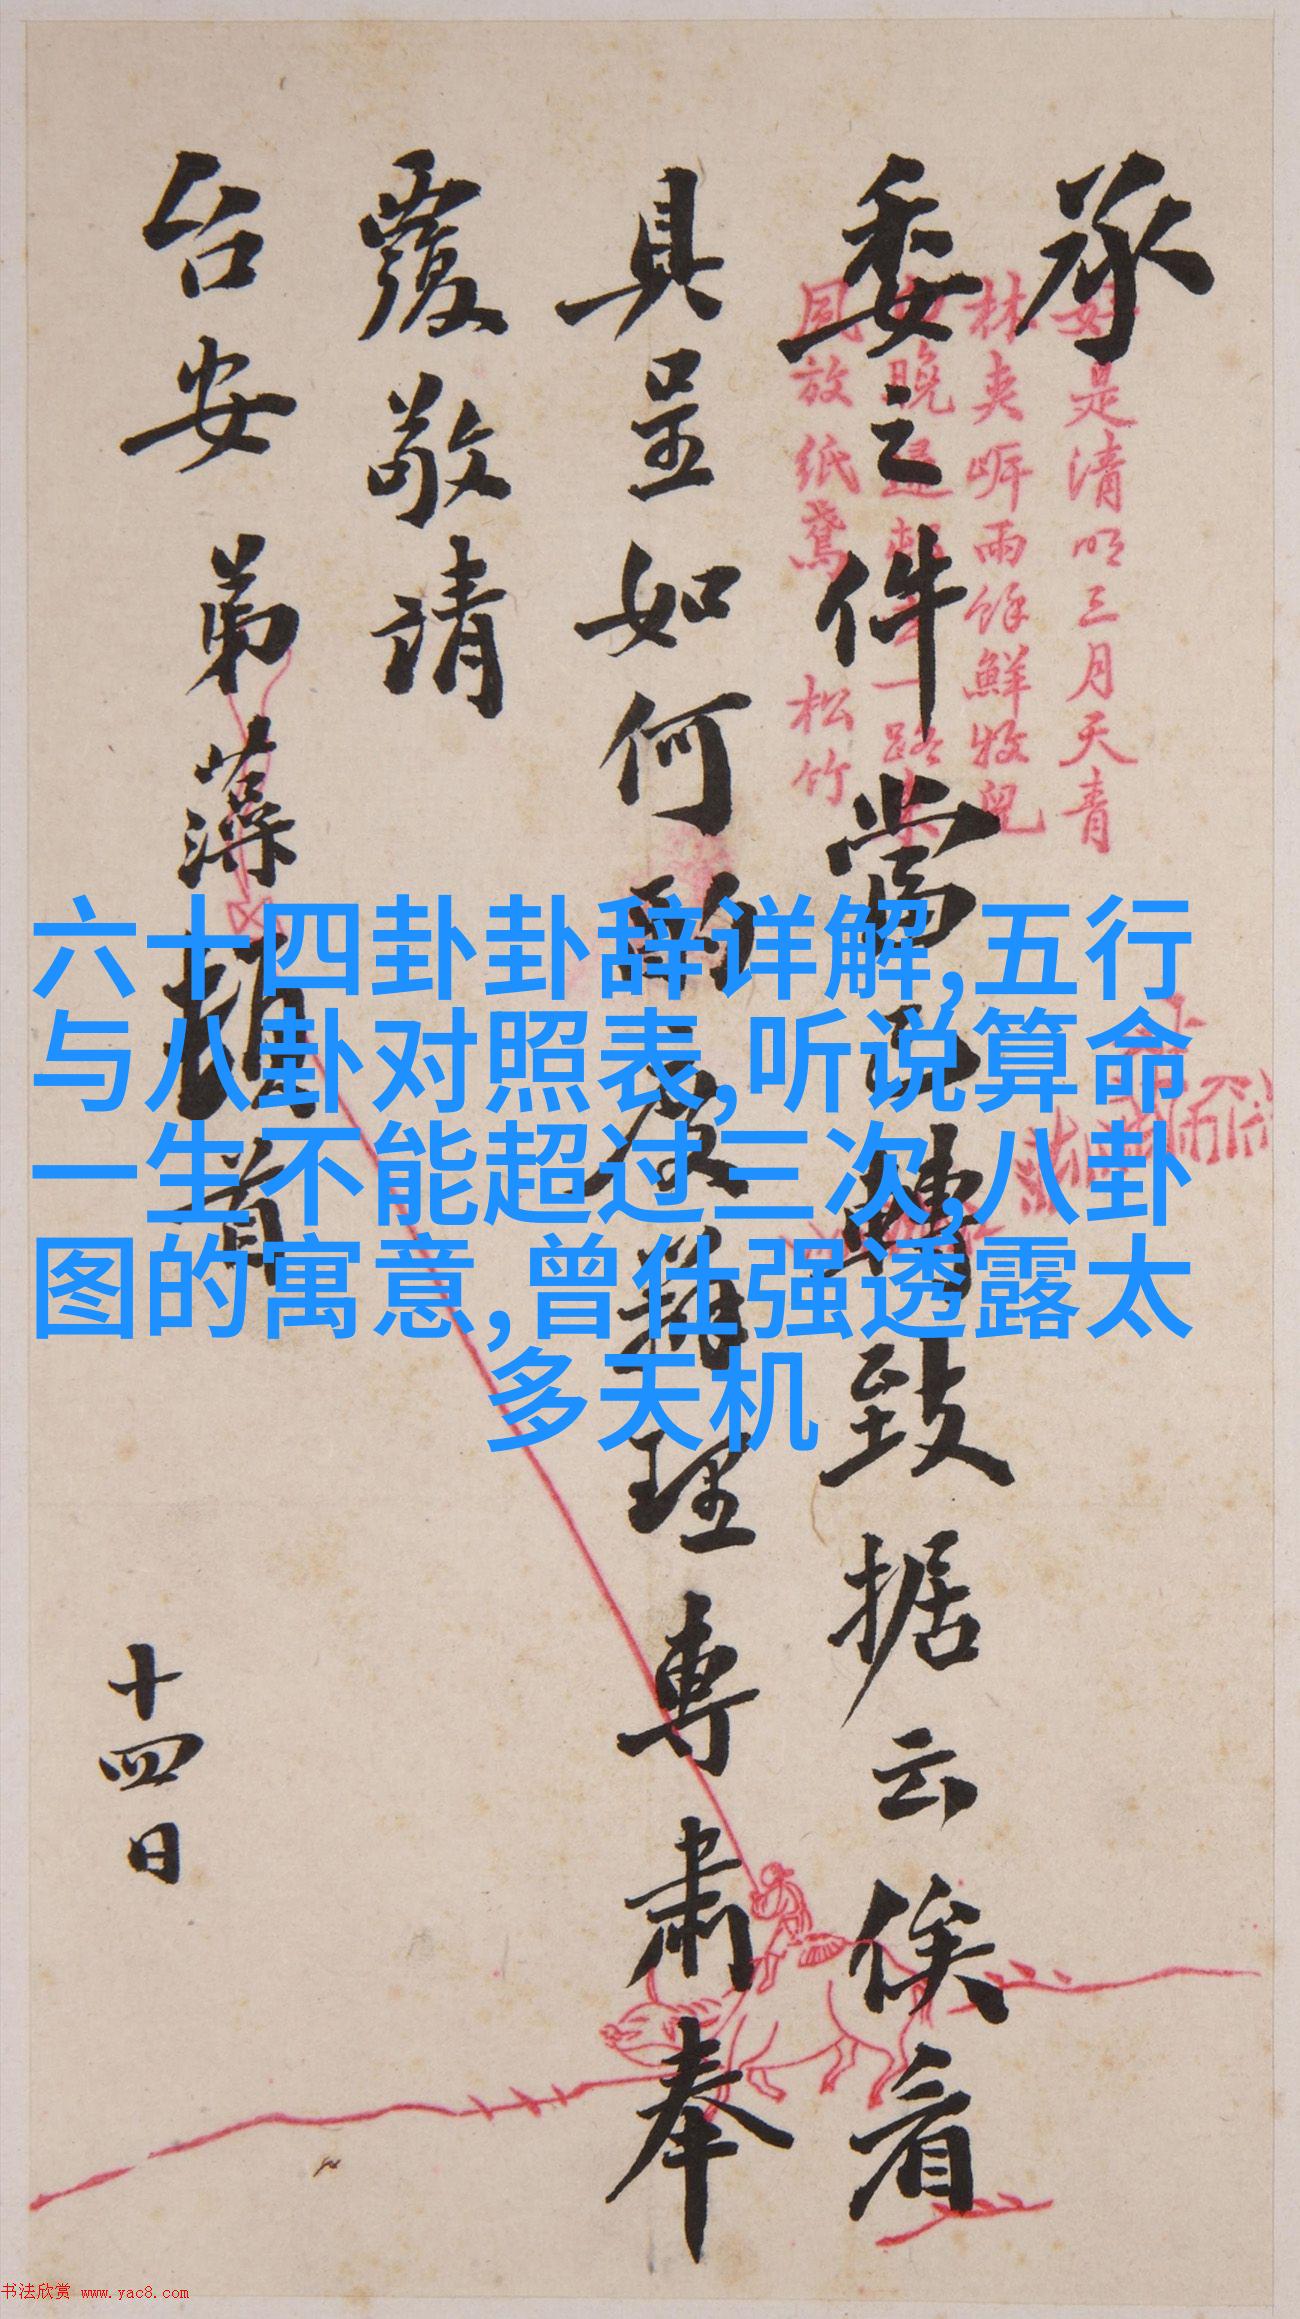 承
委之件當已轉致据云俟看
具呈如何
理專肅奉
覆敬請
台安 弟藻頓首
十四日
好是清明三月天青
林夾岸雨餘鮮牧兒
同放紙鳶 松竹
六十四卦卦辞详解,五行
与八卦对照表,听说算命
一生不能超过三次,八卦
图的寓意,曾仕强透露太
多天机
书法欣赏 www.yac8.com